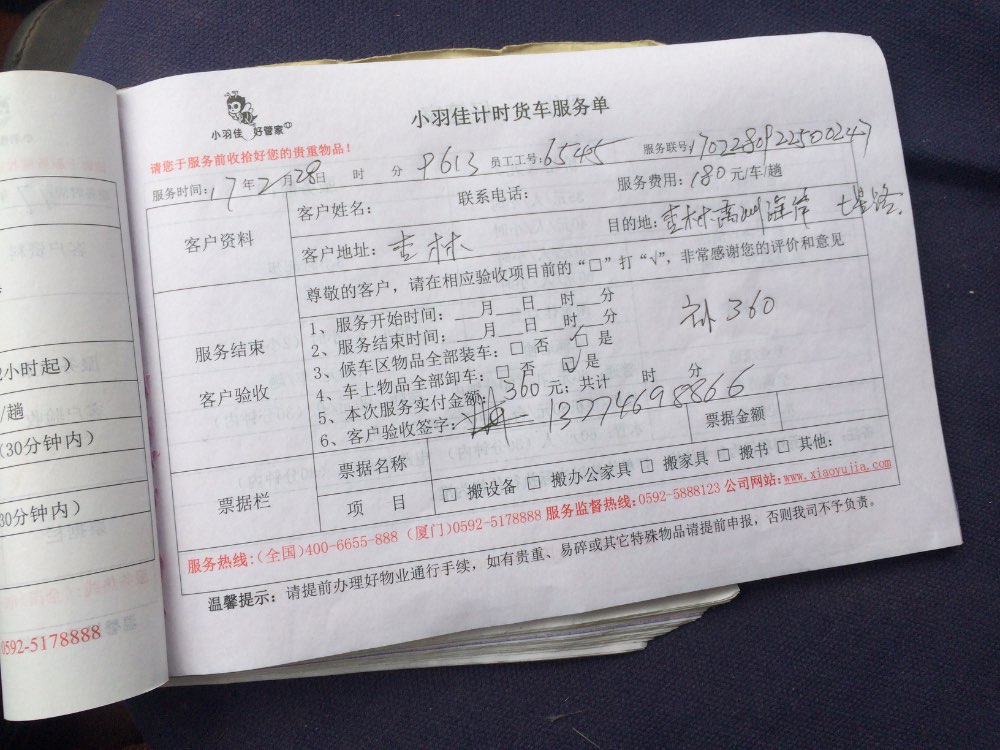 小羽佳 好管家
小羽佳计时货车服务单
请您于服务前收拾好您的贵重物品!
服务时间:17年2月28日 时 分 9613 员工工号:6545 服务联号:1702280922500247
客户资料
客户姓名: 联系电话: 服务费用:180元/车/趟
客户地址:杏林 目的地:杏林 海岸
尊敬的客户，请在相应验收项目前的“□”打“√”，非常感谢您的评价和意见
服务结束
客户验收
1、服务开始时间:___月___日___时___分
2、服务结束时间:___月___日___时___分
3、候车区物品全部装车:□ 否 □ 是
4、车上物品全部卸车:□ 否 □ 是
5、本次服务实付金额:360元; 共计 时 分
6、客户验收签字: 13774698866
补360
票据栏
票据名称 票据金额
项 目 □ 搬设备 □ 搬办公家具 □ 搬家具 □ 搬书 □ 其他:
服务热线:(全国)400-6655-888 (厦门)0592-5178888 服务监督热线:0592-5888123 公司网站:www.xiaoyujia.com
温馨提示: 请提前办理好物业通行手续，如有贵重、易碎或其它特殊物品请提前申报，否则我司不予负责。
小时起)
/趟
(30分钟内)
30分钟内)
0592-5178888